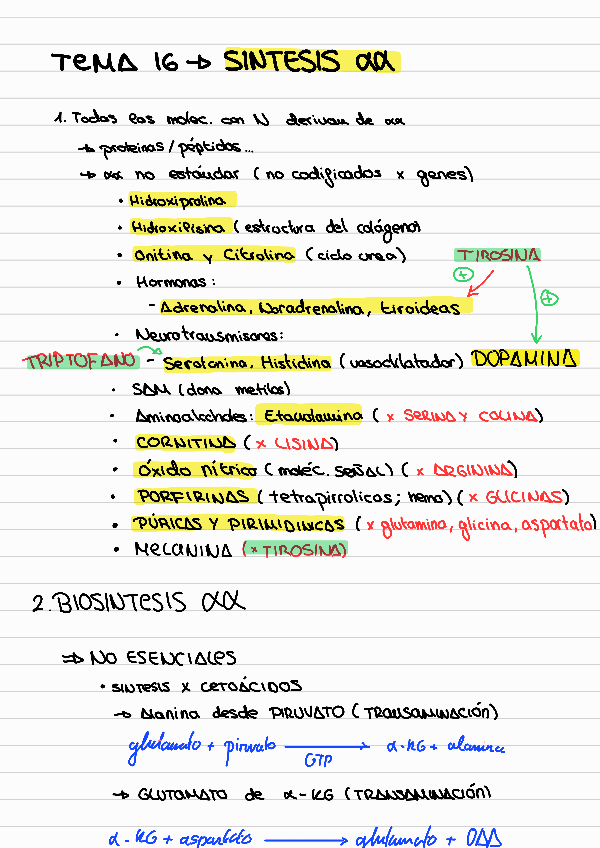 TEMA 16 → SINTESIS αα
1. Todas las moléc. con N derivan de αα
→ proteinas / péptidos...
→ αα no estándar ( no codificados x genes)
• Hidroxiprolina
• Hidroxilisina ( estructura del colágeno)
• Onitina y Citrolina ( ciclo urea)
TIROSINA
• Hormonas :
- Adrenalina, Noradrenalina, tiroideas
• Neurotransmisores:
TRIPTOFANO - Serotonina, Histidina ( vasodilatador) DOPAMINA
• SAM ( dona metilos)
• Aminoalcoholes: Etanolamina ( x SERINA Y COLINA)
• CORNITINA ( x LISINA)
• Óxido nítrico ( moléc. SEÑAL) ( x ARGININA)
• PORFIRINAS ( tetrapirrolicas; hemo) ( x GLICINAS)
• PÚRICAS Y PIRIMIDINCAS ( x glutamina, glicina, aspartato)
• MELANINA ( x TIROSINA)
2. BIOSINTESIS αα
⇒ NO ESENCIALES
• SINTESIS X CETOÁCIDOS
→ Alanina desde PIRUVATO ( TRANSAMINACIÓN)
glutamato + piruvato → α-KG + alanina
GTP
→ GLUTAMATO de α-KG ( TRANSAMINACIÓN)
α-KG + aspartato → glutamato + OAA